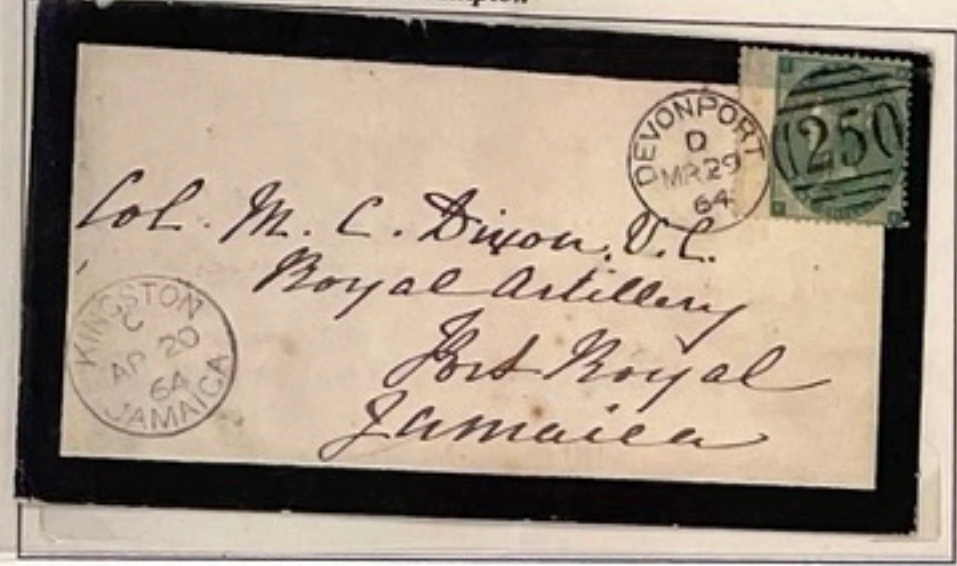 DEVONPORT
D
MR 29
64
250
Col. M. C. Dixon, V. C.
Royal Artillery
Port Royal
Jamaica
KINGSTON
C
AP 20
64
JAMAICA